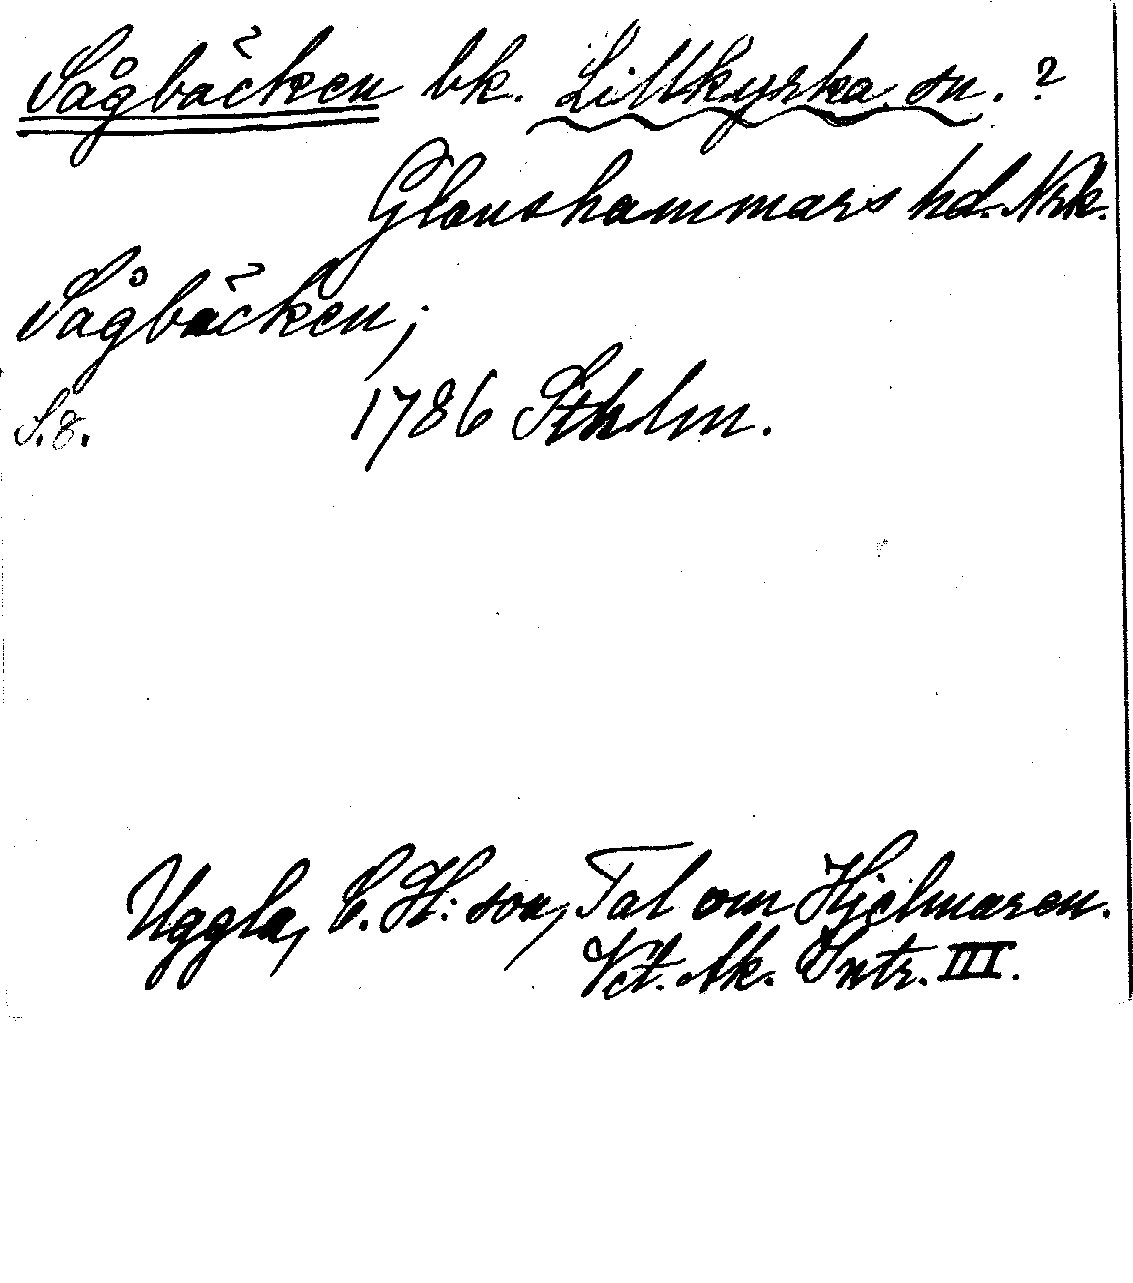 Sågbäcken bk. Lillkyrka sn. ?
Glanshammars hd. Nrk.
Sågbäcken;
S.8. 1786 Sthlm.
Uggla, C. H:son, Tal om Hjelmaren.
Vet. Ak. Intr. III.